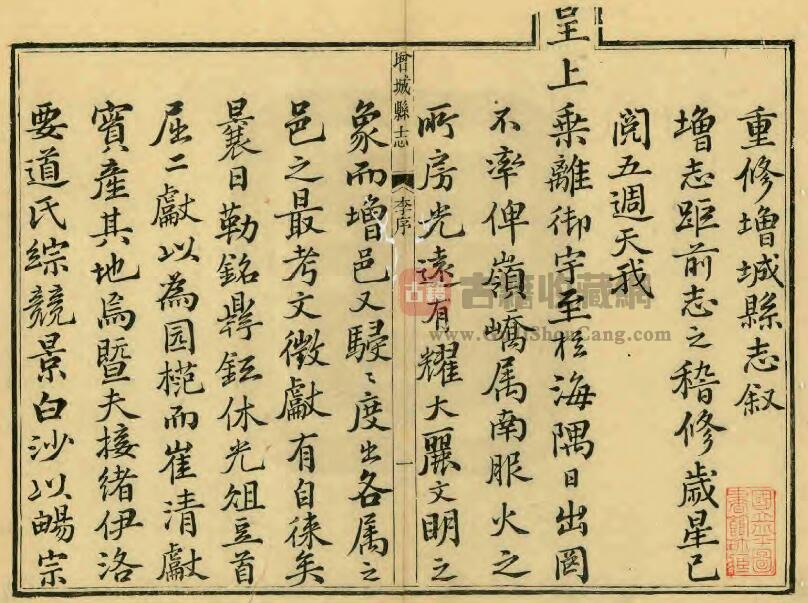 重修增城縣志叙
增志距前志之稽修歲星已
閱五週天我
皇上乘離御宇至于海隅日出罔
不率俾嶺嶠属南服火之
所房光遠有耀大麗文明之
增城縣志
李序
一
象而增邑又駸〻度出各属之
邑之最考文徵獻有自徠矣
曩日勒銘鼎鉉休光俎豆首
屈二獻以為圆范而崔清獻
實產其地焉暨夫接緒伊洛
要道氏綜競景白沙以暢宗
古籍收藏網
www.GuJiShouCang.com